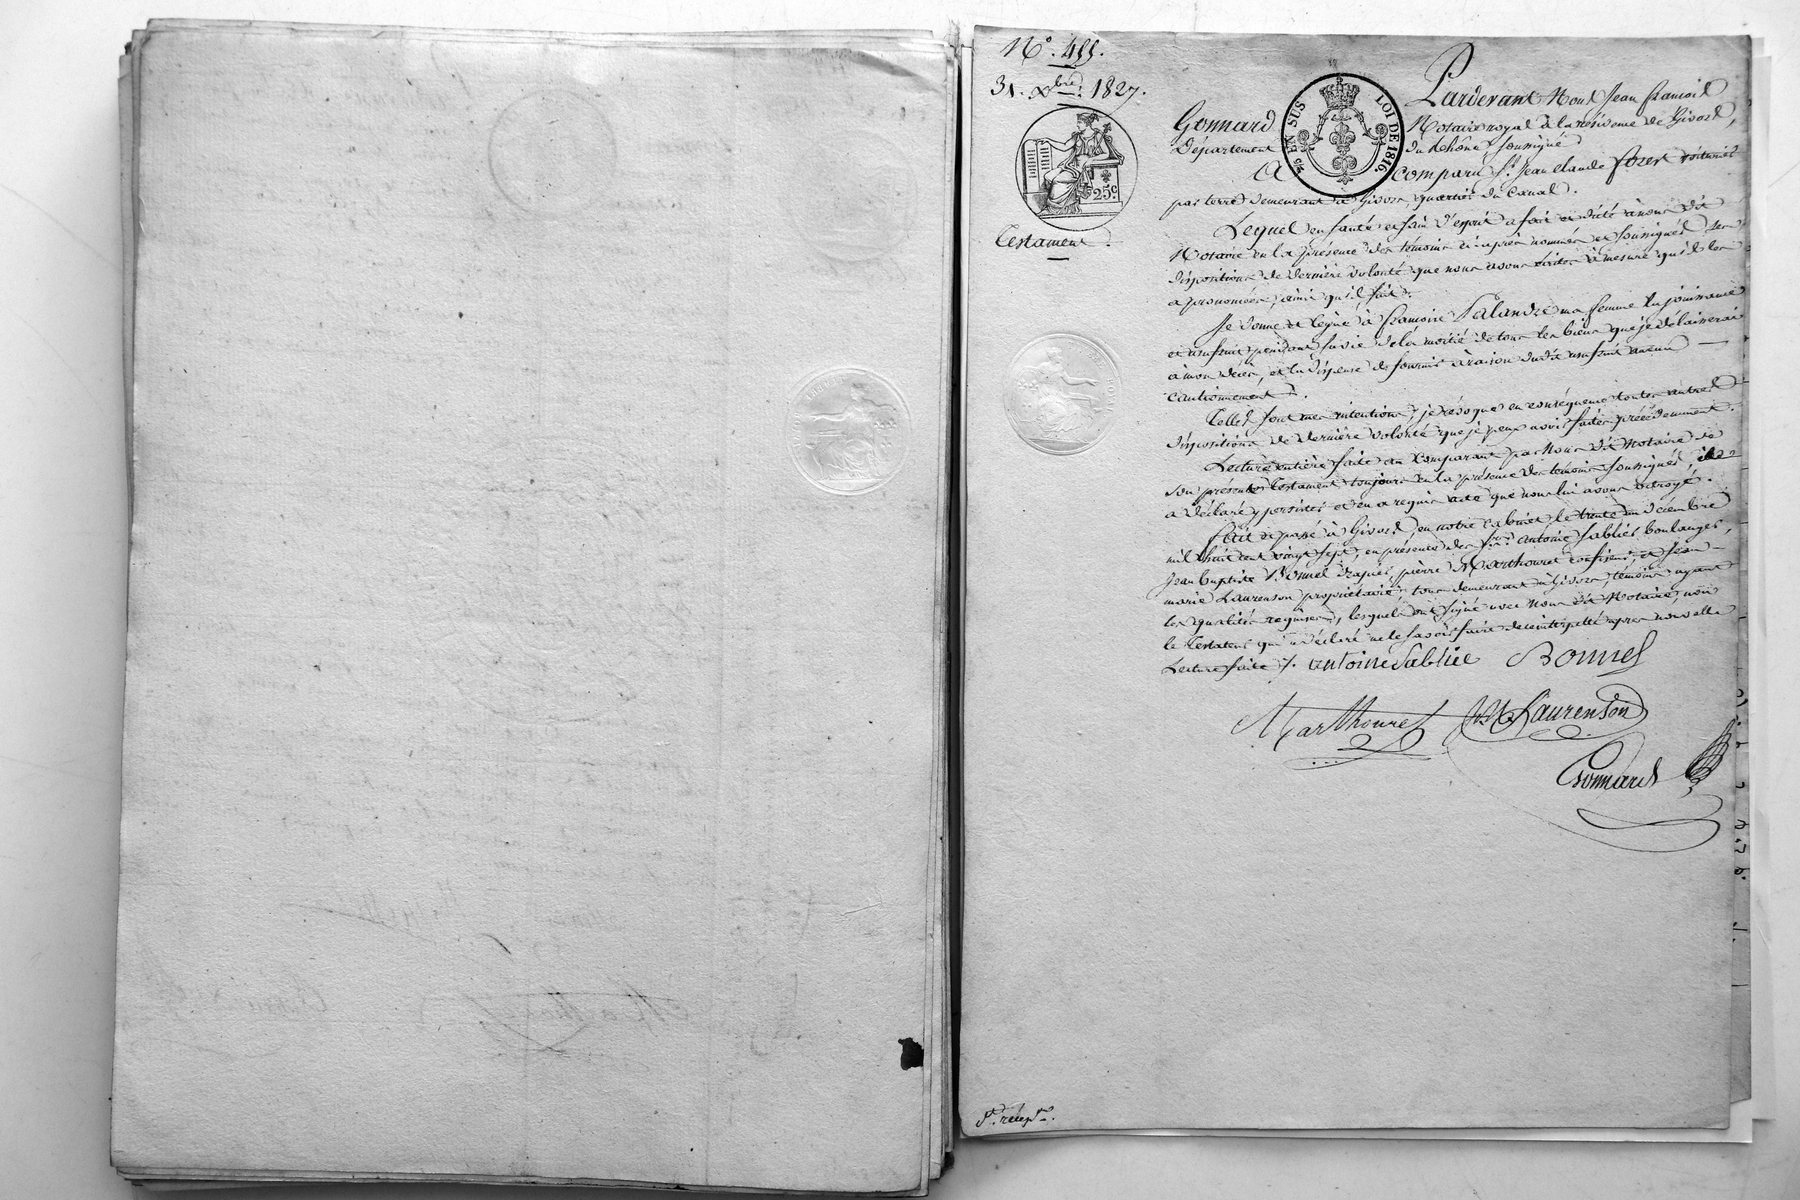 N.º 455.
31. Xbre. 1827.
25c
Testament.
EN SUS
LOI DE 1816.
Pardevant Nous Jean François
Gonnard Notaire royal à la résidence de Givors,
Département du Rhône, soussigné
A comparu Sr. Jean Claude forest voiturier
par terre demeurant à Givors, quartier du Canal.
Lequel en santé et sain d'esprit a fait et dicté à nous dit
Notaire en la présence des témoins ci-après nommés et soussignés ses
dispositions de dernière volonté que nous avons écrites à mesure qu'il les
a prononcées, ainsi qu'il suit:
Je donne et lègue à françoise Lalandre ma femme la jouissance
et usufruit pendant sa vie de la moitié de tous les biens que je délaisserai
à mon décès, et la dispense de fournir à raison dudit usufruit aucun
cautionnement.
Telles sont mes intentions, je révoque en conséquence toutes autres
dispositions de dernière volonté que je peux avoir faites précédemment.
Lecture entière faite au comparant par Nous dit Notaire de
son présent testament toujours en la présence des témoins soussignés, il
a déclaré y persister et en a requis acte que nous lui avons octroyé.
fait et passé à Givors, en notre cabinet le trente un décembre
mil huit cent vingt sept, en présence des srs. antoine Sablier boulanger,
Jean baptiste Bonnel drapier, pierre Marthouret confiseur, et Jean
marie Laurenson propriétaire, tous demeurant à Givors, témoins ayant
les qualités requises, lesquels ont signé avec Nous dit Notaire, non
le Testateur qui a déclaré ne le savoir faire de ce interpellé après nouvelle
Lecture faite /. antoine Sablier Bonnel
Marthouret JM Laurenson
Gonnard